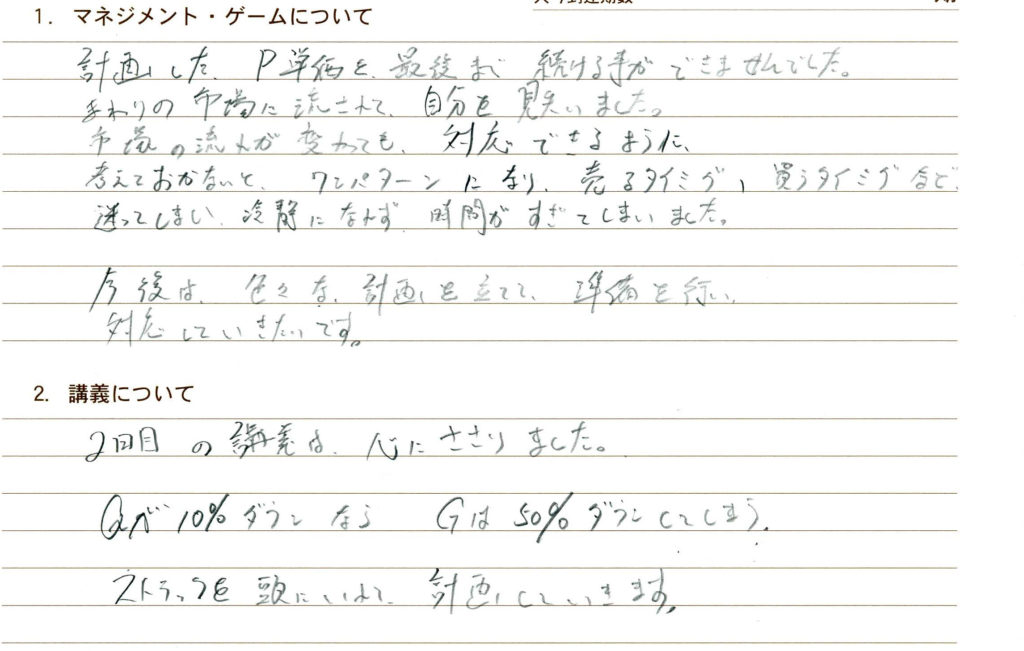 1. マネジメント・ゲームについて
計画した、P単価を、最後まで 続ける事が できませんでした。
まわりの市場に流されて、自分を見失いました。
市場の流れが変わっても、対応できるように、
考えておかないと、ワンパターンになり、売るタイミング、買うタイミングなど、
迷ってしまい、冷静になれず、時間がすぎてしまいました。
今後は、色々な、計画を立てて、準備を行い、
対応していきたいです。
2. 講義について
2回目の講義は、心にささりました。
Qが10%ダウンなら Gは50%ダウンしてしまう。
ストラックを頭にいれて、計画していきます。